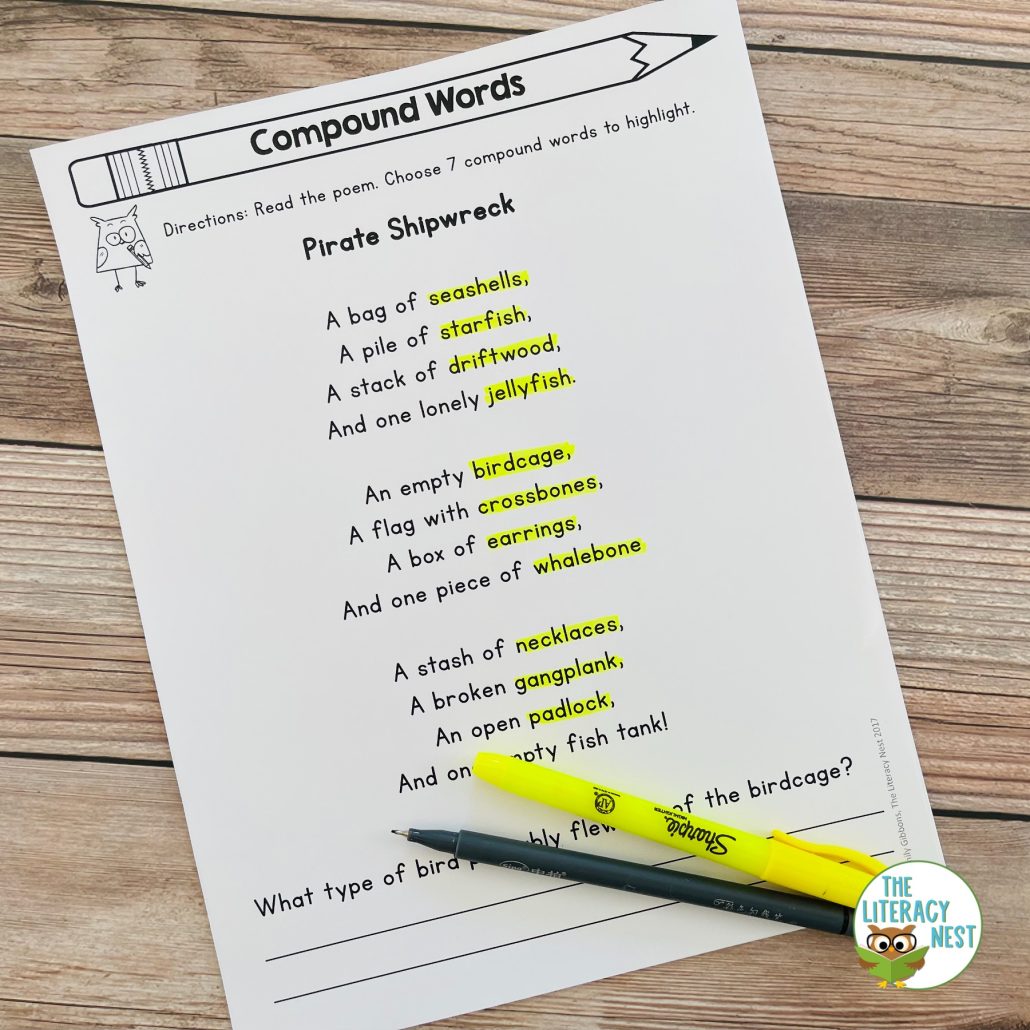 Compound Words
Directions: Read the poem. Choose 7 compound words to highlight.
Pirate Shipwreck
A bag of seashells,
A pile of starfish,
A stack of driftwood,
And one lonely jellyfish.
An empty birdcage,
A flag with crossbones,
A box of earrings,
And one piece of whalebone
A stash of necklaces,
A broken gangplank,
An open padlock,
And fish tank!
What type of bird flew of the birdcage?
Gibbons, The Literacy Nest 2017
Sharpie
HIGHLIGHTER
AP
THE
LITERACY
NEST